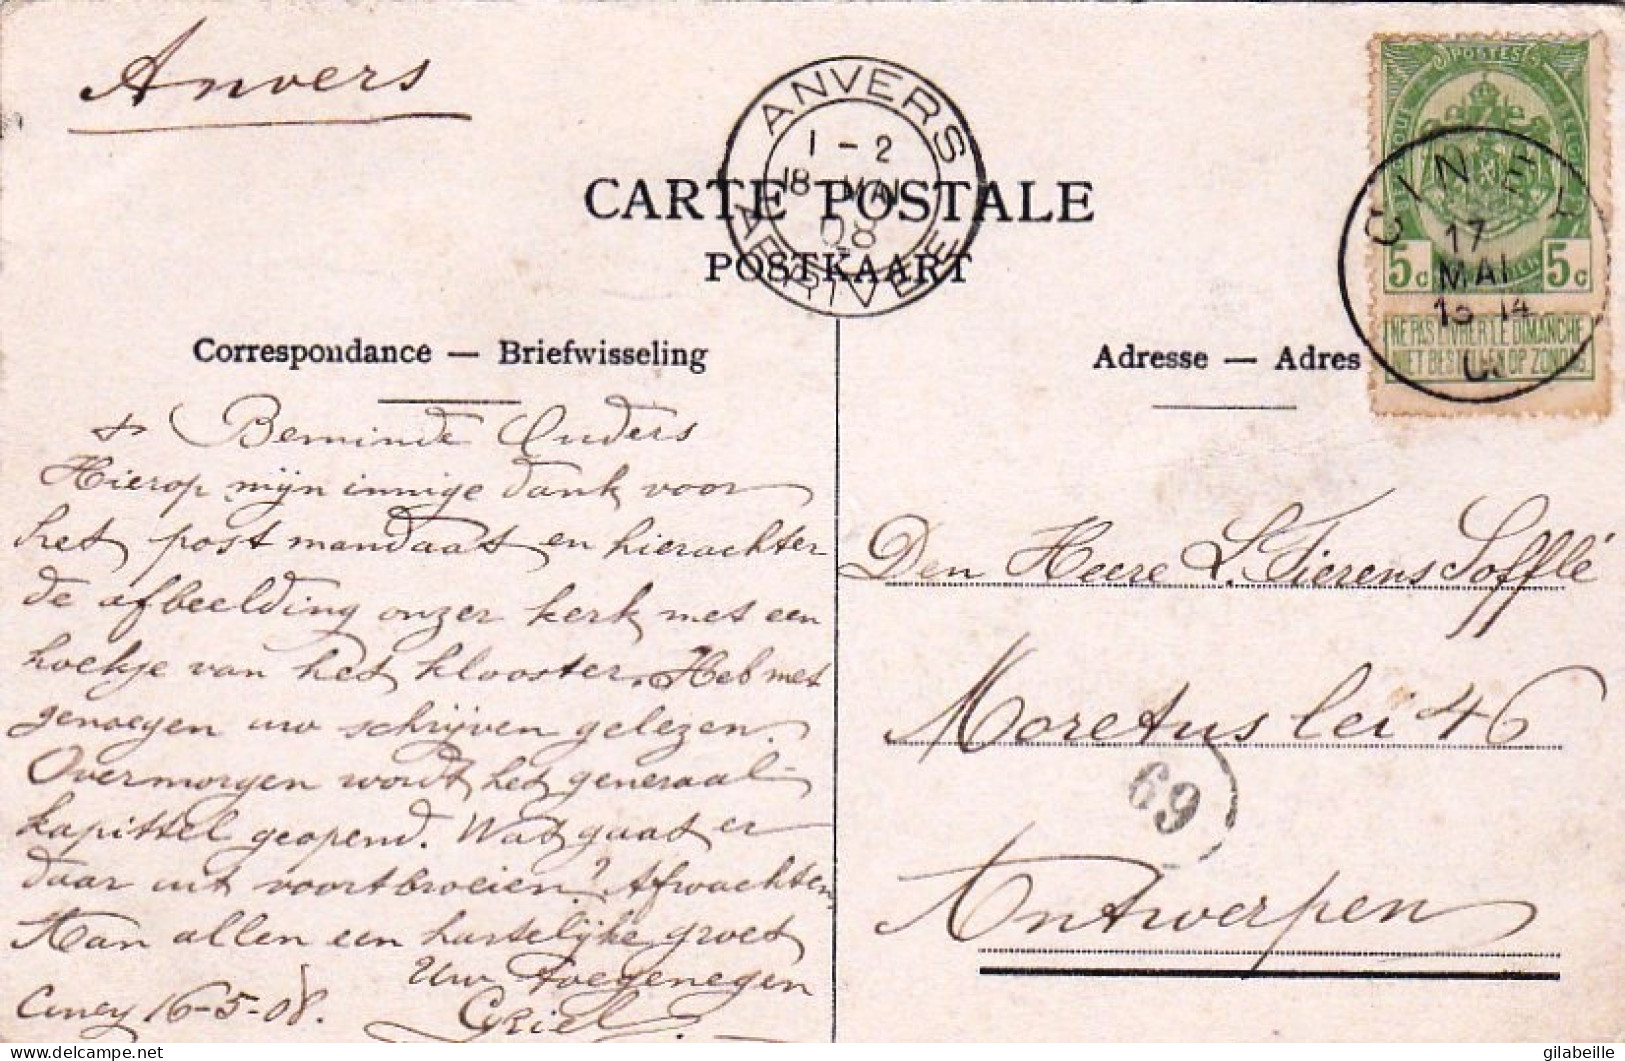 Anvers
ANVERS
1 - 2
18 MAI
08
ARRIVEE
CARTE POSTALE
POSTKAART
POSTES
5c 5c
NE PAS LIVRER LE DIMANCHE
NIET BESTELLEN OP ZONDAG
CINEY
17
MAI
13-14
Correspondance — Briefwisseling
Adresse — Adres
+ Beminde Ouders
Hierop mijn innige dank voor
het postmandaat en hierachter
de afbeelding onzer kerk met een
hoekje van het klooster. Heb met
genoegen uw schrijven gelezen.
Overmorgen wordt het generaal
kapittel geopend. Wat gaat er
daar uit voortbroeien? Afwachten
Aan allen een hartelijke groet
Uw toegenegen
Ciney 16-5-08. Cyriel.
Den Heere L. Tierens Sofflé
Moretus lei 46
69
Antwerpen
delcampe.net
gilabeille